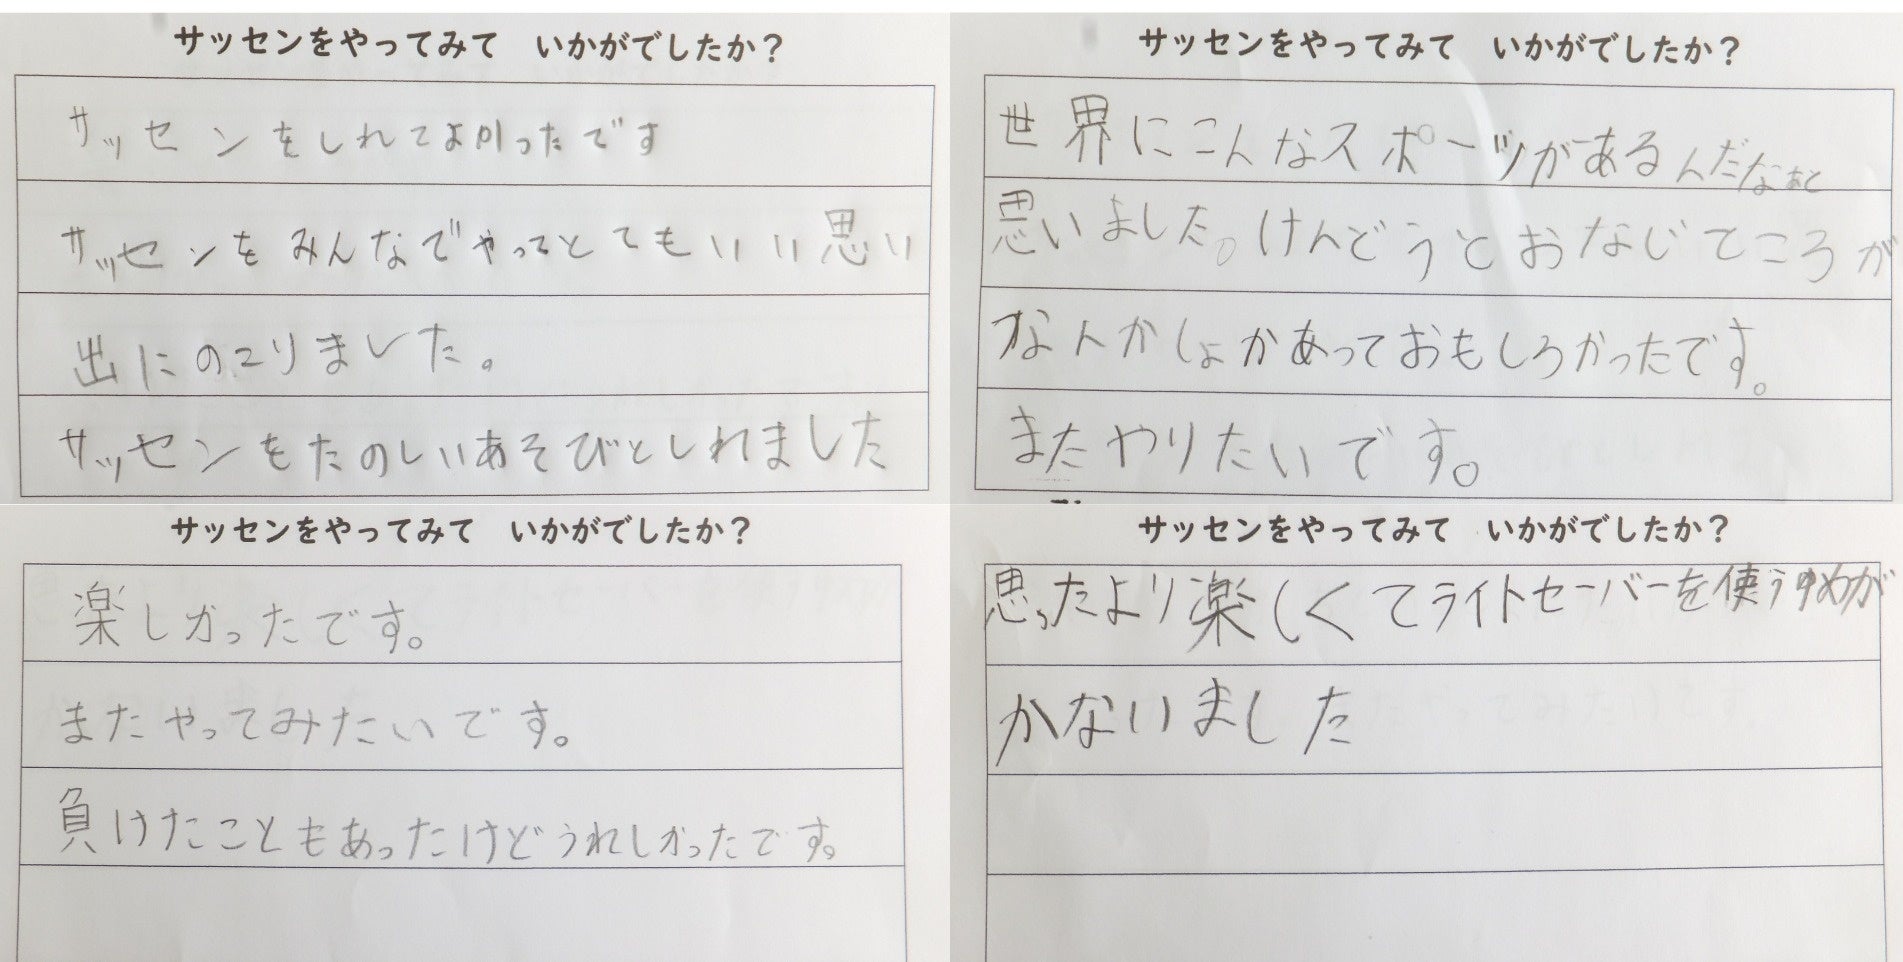 サッセンをやってみて いかがでしたか?
サッセンをしれてよかったです
サッセンをみんなでやってとてもいい思い
出にのこりました。
サッセンをたのしいあそびとしれました
サッセンをやってみて いかがでしたか?
世界にこんなスポーツがあるんだなぁと
思いました。けんどうとおなじところが
なんかしょかあっておもしろかったです。
またやりたいです。
サッセンをやってみて いかがでしたか?
楽しかったです。
またやってみたいです。
負けたこともあったけどうれしかったです。
サッセンをやってみて いかがでしたか?
思ったより楽しくてライトセーバーを使うゆめが
かないました